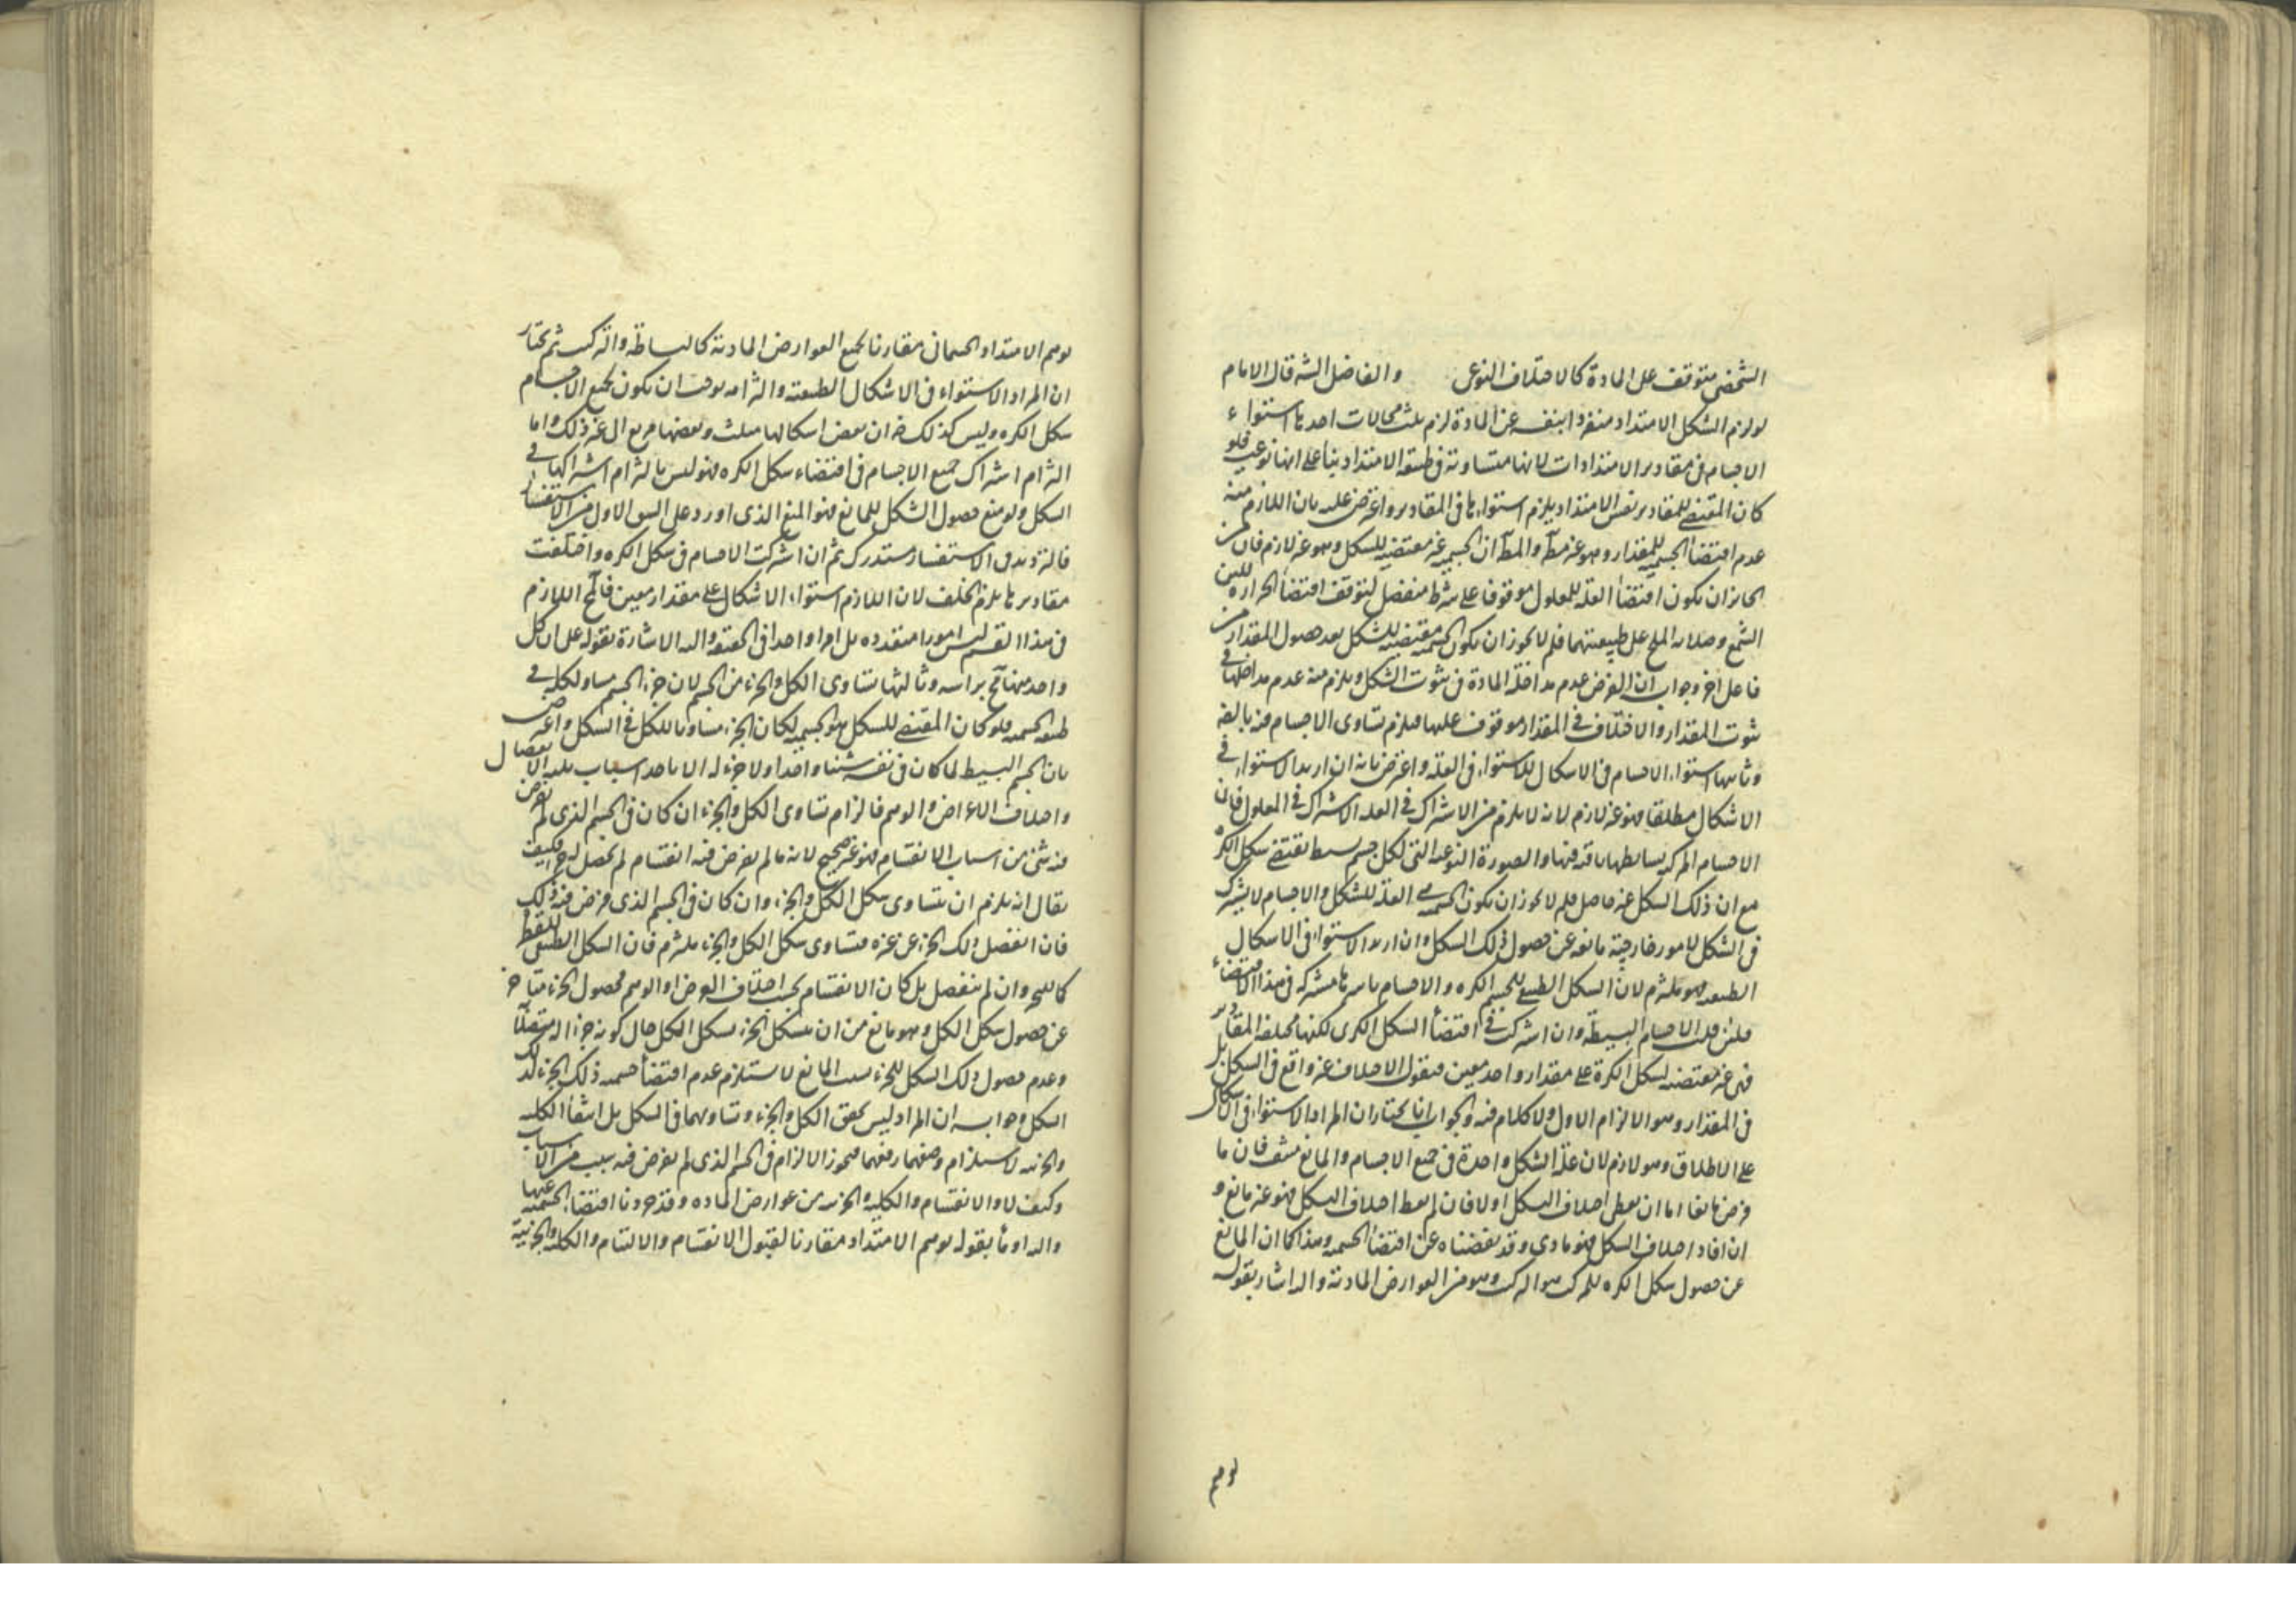 الشخصى متوقف على المادة كالاختلاف النوعى والفاضل الشه قال الامام
لو لزم الشكل الامتداد منفردا بنفسه عن المادة لزم ثلث محالات احدها استواء
الاجسام فى مقادير الامتدادات لانها متساوية فى طبيعة الامتداد بناء على انها نوعية فلو
كان المقتضى للمقادير نفس الامتداد يلزم استواءها فى المقادير واعترض عليه بان اللازم منه
عدم اقتضاء الجسمية للمقدار وهو غير مط والمط ان الجسمية غير مقتضية للشكل وهو غير لازم فان من
الجائز ان يكون اقتضاء العلة للمعلول موقوفا على شرط منفصل لتوقف اقتضاء الحرارة للين
الشمع وصلابة الملح على طبيعتهما فلم لا يجوز ان يكون الجسمية مقتضية للشكل بعد حصول المقدار من
فاعل اخر وجوابه ان الغرض عدم مداخلة المادة فى ثبوت الشكل ويلزم منه عدم مداخلتها فى
ثبوت المقدار والاختلاف فى المقدار موقوف عليها فيلزم تساوى الاجسام فيه بالضه
وثانيها استواء الاجسام فى الاشكال للاستواء فى العلة واعترض بانه ان اريد الاستواء فى
الاشكال مطلقا فهو غير لازم لانه لا يلزم من الاشتراك فى العلة الاشتراك فى المعلول فان
الاجسام المركبة بسايطها باقية فيها والصورة النوعية التى لكل جسم بسيط تقتضى شكل الكرة
مع ان ذلك الشكل غير حاصل فلم لا يجوز ان يكون الجسمية هى العلة للشكل والاجسام لا يشترك
فى الشكل لامور خارجية مانعة عن حصول ذلك الشكل وان اريد الاستواء فى الاشكال
الطبيعية فهو ملتزم لان الشكل الطبيعى للجسم الكره والاجسام باسرها مشتركة فى هذا الاقتضاء
فلئن قلت الاجسام البسيطة وان اشتركت فى اقتضاء الشكل الكرى لكنها مختلفة المقادير
فهى غير مقتضية لشكل الكرة على مقدار واحد معين فنقول الاختلاف غير واقع فى الشكل بل
فى المقدار وهو الالزام الاول ولا كلام فيه والجواب انا نختار ان المراد الاستواء فى الاشكال
على الاطلاق وهو لازم لان علة الشكل واحدة فى جميع الاجسام والمانع منتف فان ما
فرض مانعا اما ان يعطى اختلاف الشكل او لا فان لم يعط اختلاف الشكل فهو غير مانع و
ان افاد اختلاف الشكل فهو مادى وقد نفضناه عن اقتضاء الجسمية وهذا كما ان المانع
عن حصول شكل الكره للمركب هو التركيب وهو من العوارض المادية واليه اشار بقوله
توهم
توهم الامتداد الجسمانى مقارنا لجميع العوارض المادية كالبساطة والتركيب ثم نختار
ان المراد الاستواء فى الاشكال الطبيعية والتزامه يوجب ان يكون لجميع الاجسام
شكل الكره وليس كذلك ضه ان بعض اشكالها مثلث وبعضها مربع الى غير ذلك واما
التزام اشتراك جميع الاجسام فى اقتضاء شكل الكره فهو ليس بالتزام اشتراكها فى
الشكل ولو منع حصول الشكل للمانع فهو المنع الذى اورد على الشق الاول من الاستفسار
فالترديد فى الاستفسار مستدرك ثم ان اشتركت الاجسام فى شكل الكره واختلفت
مقاديرها يلزم الخلف لان اللازم استواء الاشكال على مقدار معين فالمح اللازم
فى هذا القسم ليس امورا متعددة بل امرا واحدا فى الحقيقة واليه الاشارة بقوله على ان كل
واحد منها مح براسه وثالثها تساوى الكل والجزء من الجسم لان جزء الجسم مساو لكله فى
طبيعة الجسمية فلو كان المقتضى للشكل هو الجسمية لكان الجزء مساويا للكل فى الشكل واعترض
بان الجسم البسيط لما كان فى نفسه شيئا واحدا ولا جزء له الا باحد اسباب ثلثة الانفصال
واختلاف الاعراض والوهم فالزام تساوى الكل والجزء ان كان فى الجسم الذى لم يعرض
فيه شئ من اسباب الانقسام فهو غير صحيح لانه ما لم يعرض فيه انقسام لم يحصل له جزء فكيف
يقال انه يلزم ان يتساوى شكل الكل والجزء وان كان فى الجسم الذى فرض فيه ذلك
فان انفصل ذلك الجزء عن غيره فتساوى شكل الكل والجزء ملتزم فان الشكل الطبيعى للقطرة
كالبحر وان لم ينفصل بل كان الانقسام بحسب اختلاف العرض او الوهم فحصول الجزء متاخر
عن حصول شكل الكل وهو مانع من ان يتشكل الجزء بشكل الكل حال كونه جزءا له متصلا
وعدم حصول ذلك الشكل للجزء بسبب المانع لا يستلزم عدم اقتضاء جسمية ذلك الجزء لذلك
الشكل وجوابه ان المراد ليس تحقق الكل والجزء وتساويهما فى الشكل بل انتفاء الكلية
والجزئية لاستلزام وضعهما رفعهما فيجوز الالزام فى الجسم الذى لم يعرض فيه سبب من الاسباب
وكيف لا والانقسام والكلية والجزئية من عوارض المادة وقد جردنا اقتضاء الجسمية عنها
واليه اومأ بقوله توهم الامتداد مقارنا لقبول الانقسام والالتيام والكلية والجزئية